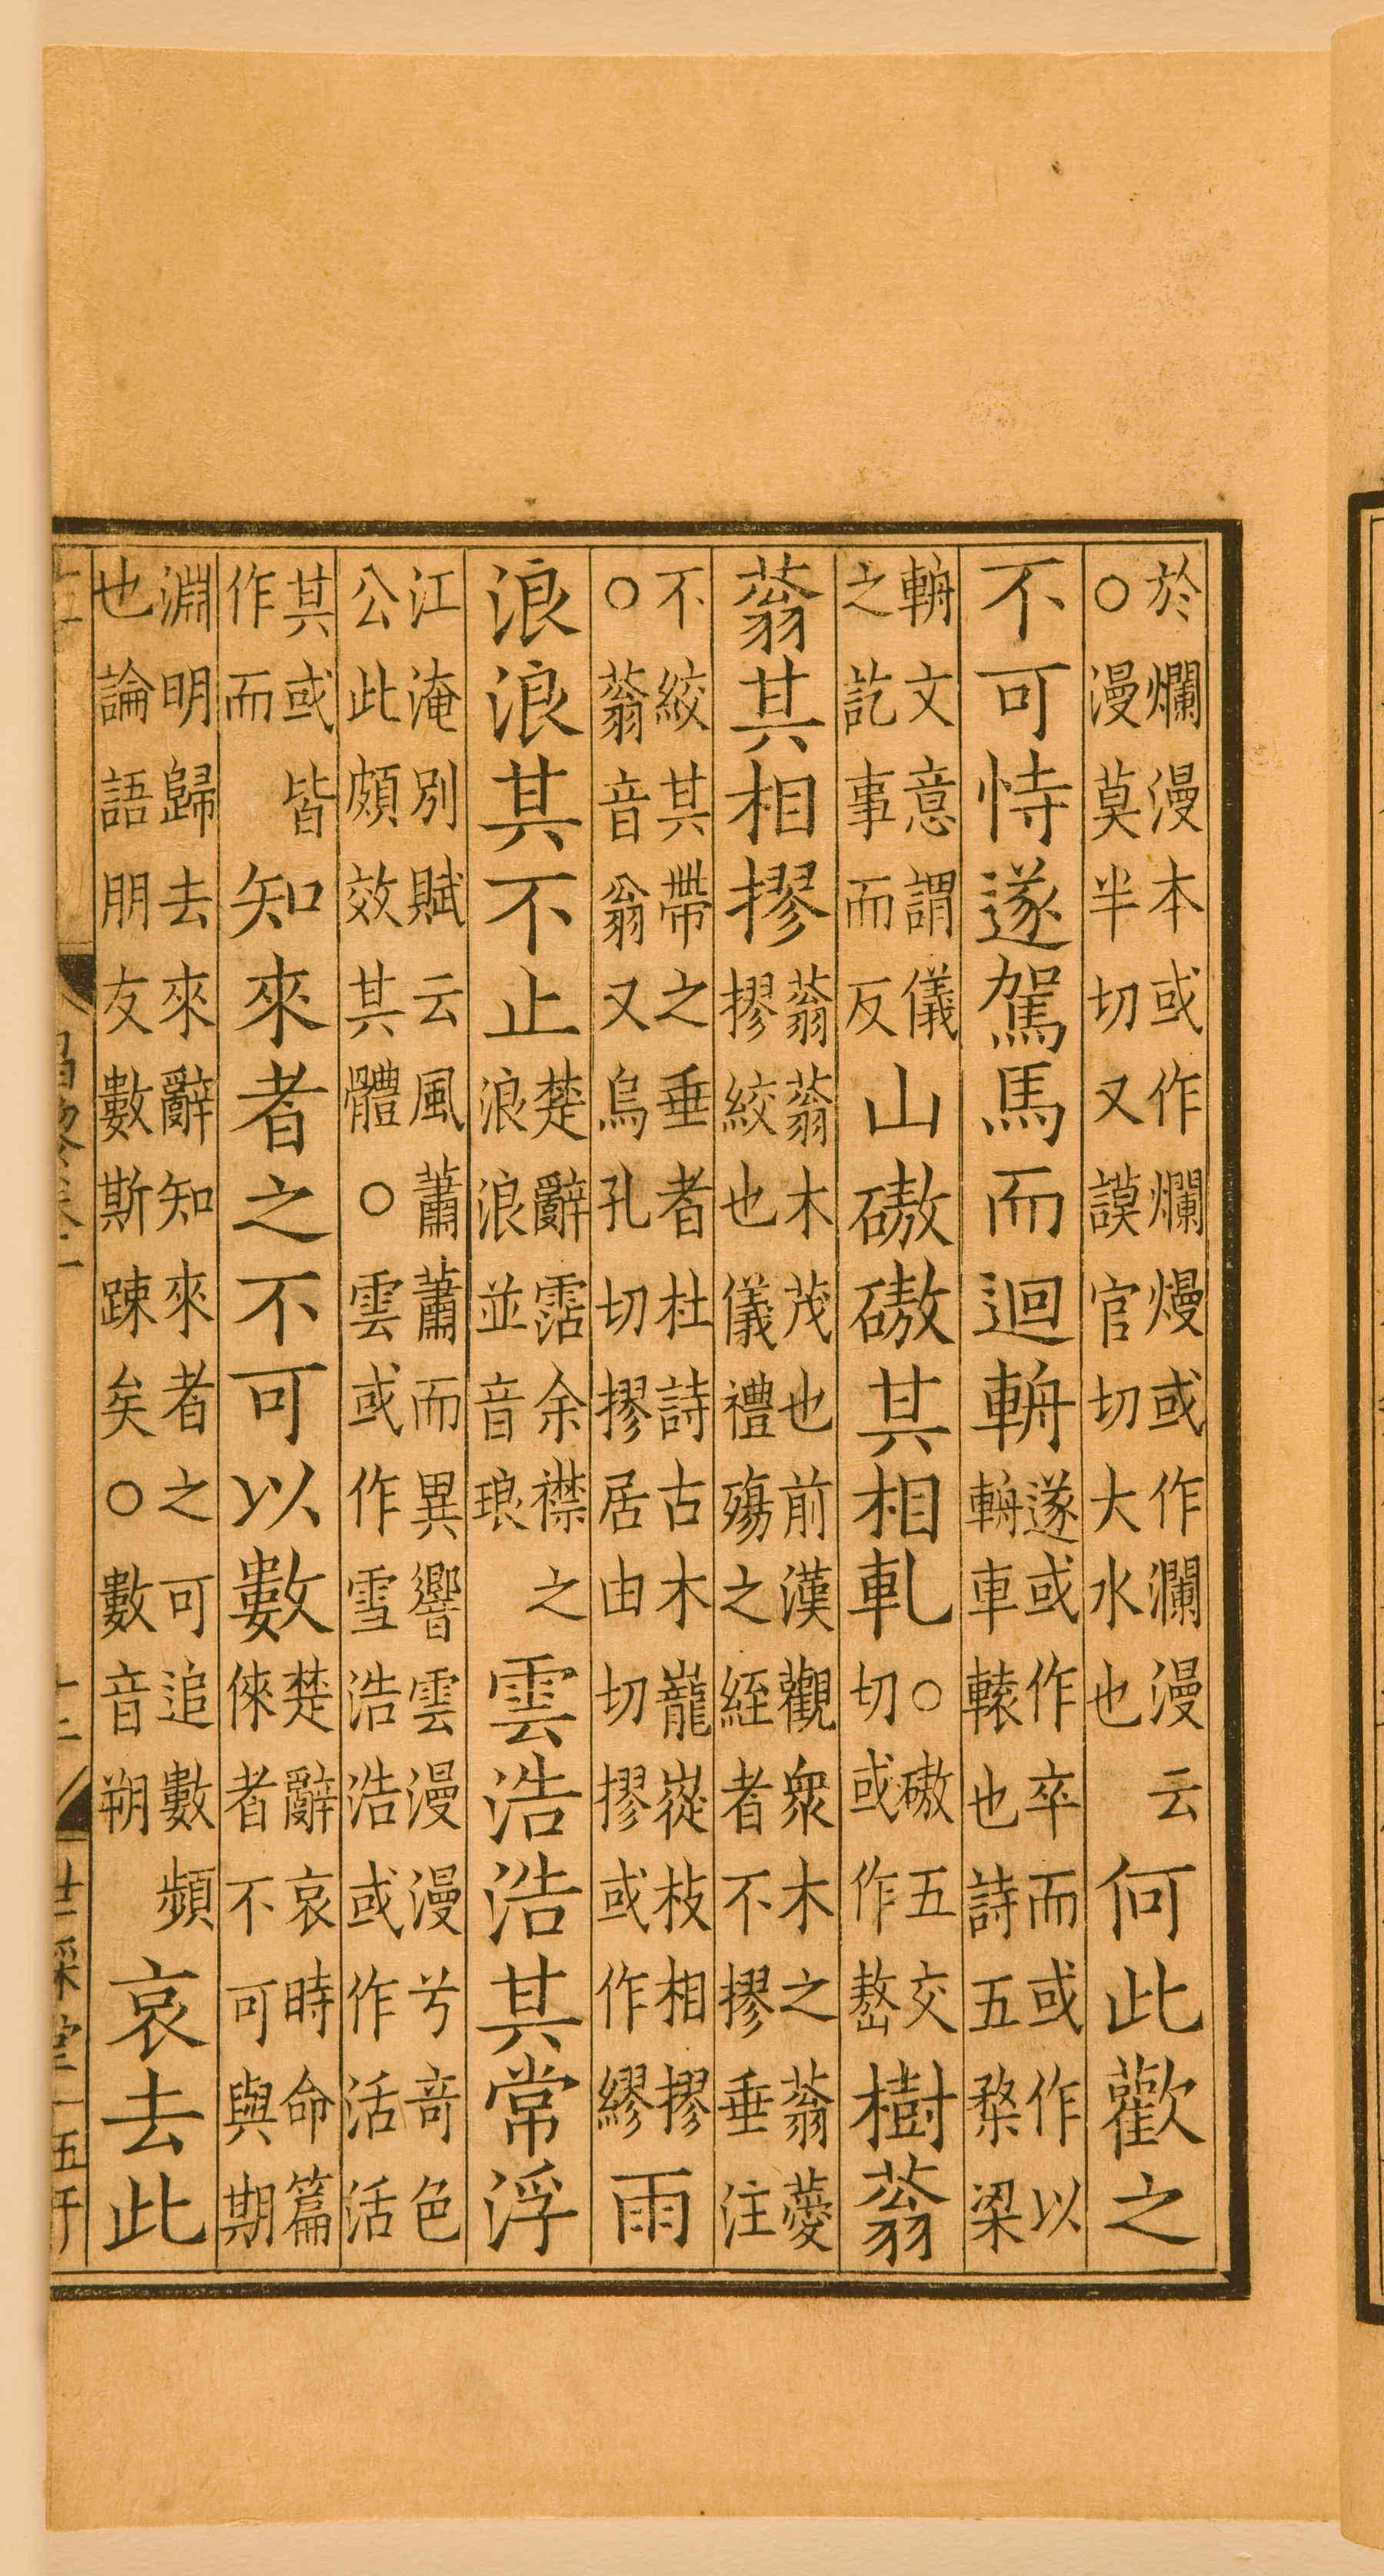 於爛漫本或作爛熳或作瀾漫云
○漫莫半切又謨官切大水也
何此歡之
不可恃遂駕馬而迴輈
遂或作卒而或作以
輈車轅也詩五楘梁
輈文意謂儀
之訖事而反
山磝磝其相軋
○磝五交
切或作嶅
樹蓊
蓊其相摎
蓊蓊木茂也前漢觀衆木之蓊薆
摎絞也儀禮殤之絰者不摎垂注
不絞其帶之垂者杜詩古木巃嵸枝相摎
○蓊音翁又烏孔切摎居由切摎或作繆
雨
浪浪其不止
楚辭霑余襟之
浪浪並音琅
雲浩浩其常浮
江淹別賦云風蕭蕭而異響雲漫漫兮竒色
公此頗效其體○雲或作雪浩浩或作活活
其或皆
作而
知來者之不可以數
楚辭哀時命篇
倈者不可與期
淵明歸去來辭知來者之可追數頻
也論語朋友數斯踈矣○數音朔
哀去此
昌黎卷一
十二
世綵堂